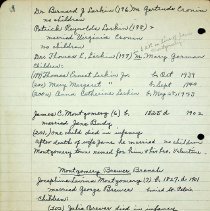 Dr. Bernard J. Larkin (196) m Gertrude Cronin
no children
Patrick Reynolds Larkin (198)
married Virginia Cronin
no children
Dr. Thomas C. Larkin (199) m Mary Gorman
Children:
(199) Thomas Ernest Larkin Jr. b Oct 1939
(200) Mary Margaret " b Sept 1944
(200a) Anna Catherine Larkin b May 25, 1953
James C. Montgomery (6) b. 1825 d 1902
married Jary Busby
(201) One child died in infancy
after death of wife James he married no children
Montgomery town named for him, Ohio Pro. Valentine
Montgomery Brewer Branch
Josephine Anna Montgomery (7) b. 1827, d. 1901
married George Brewer
Children:
(202) Julia Brewer died in infancy